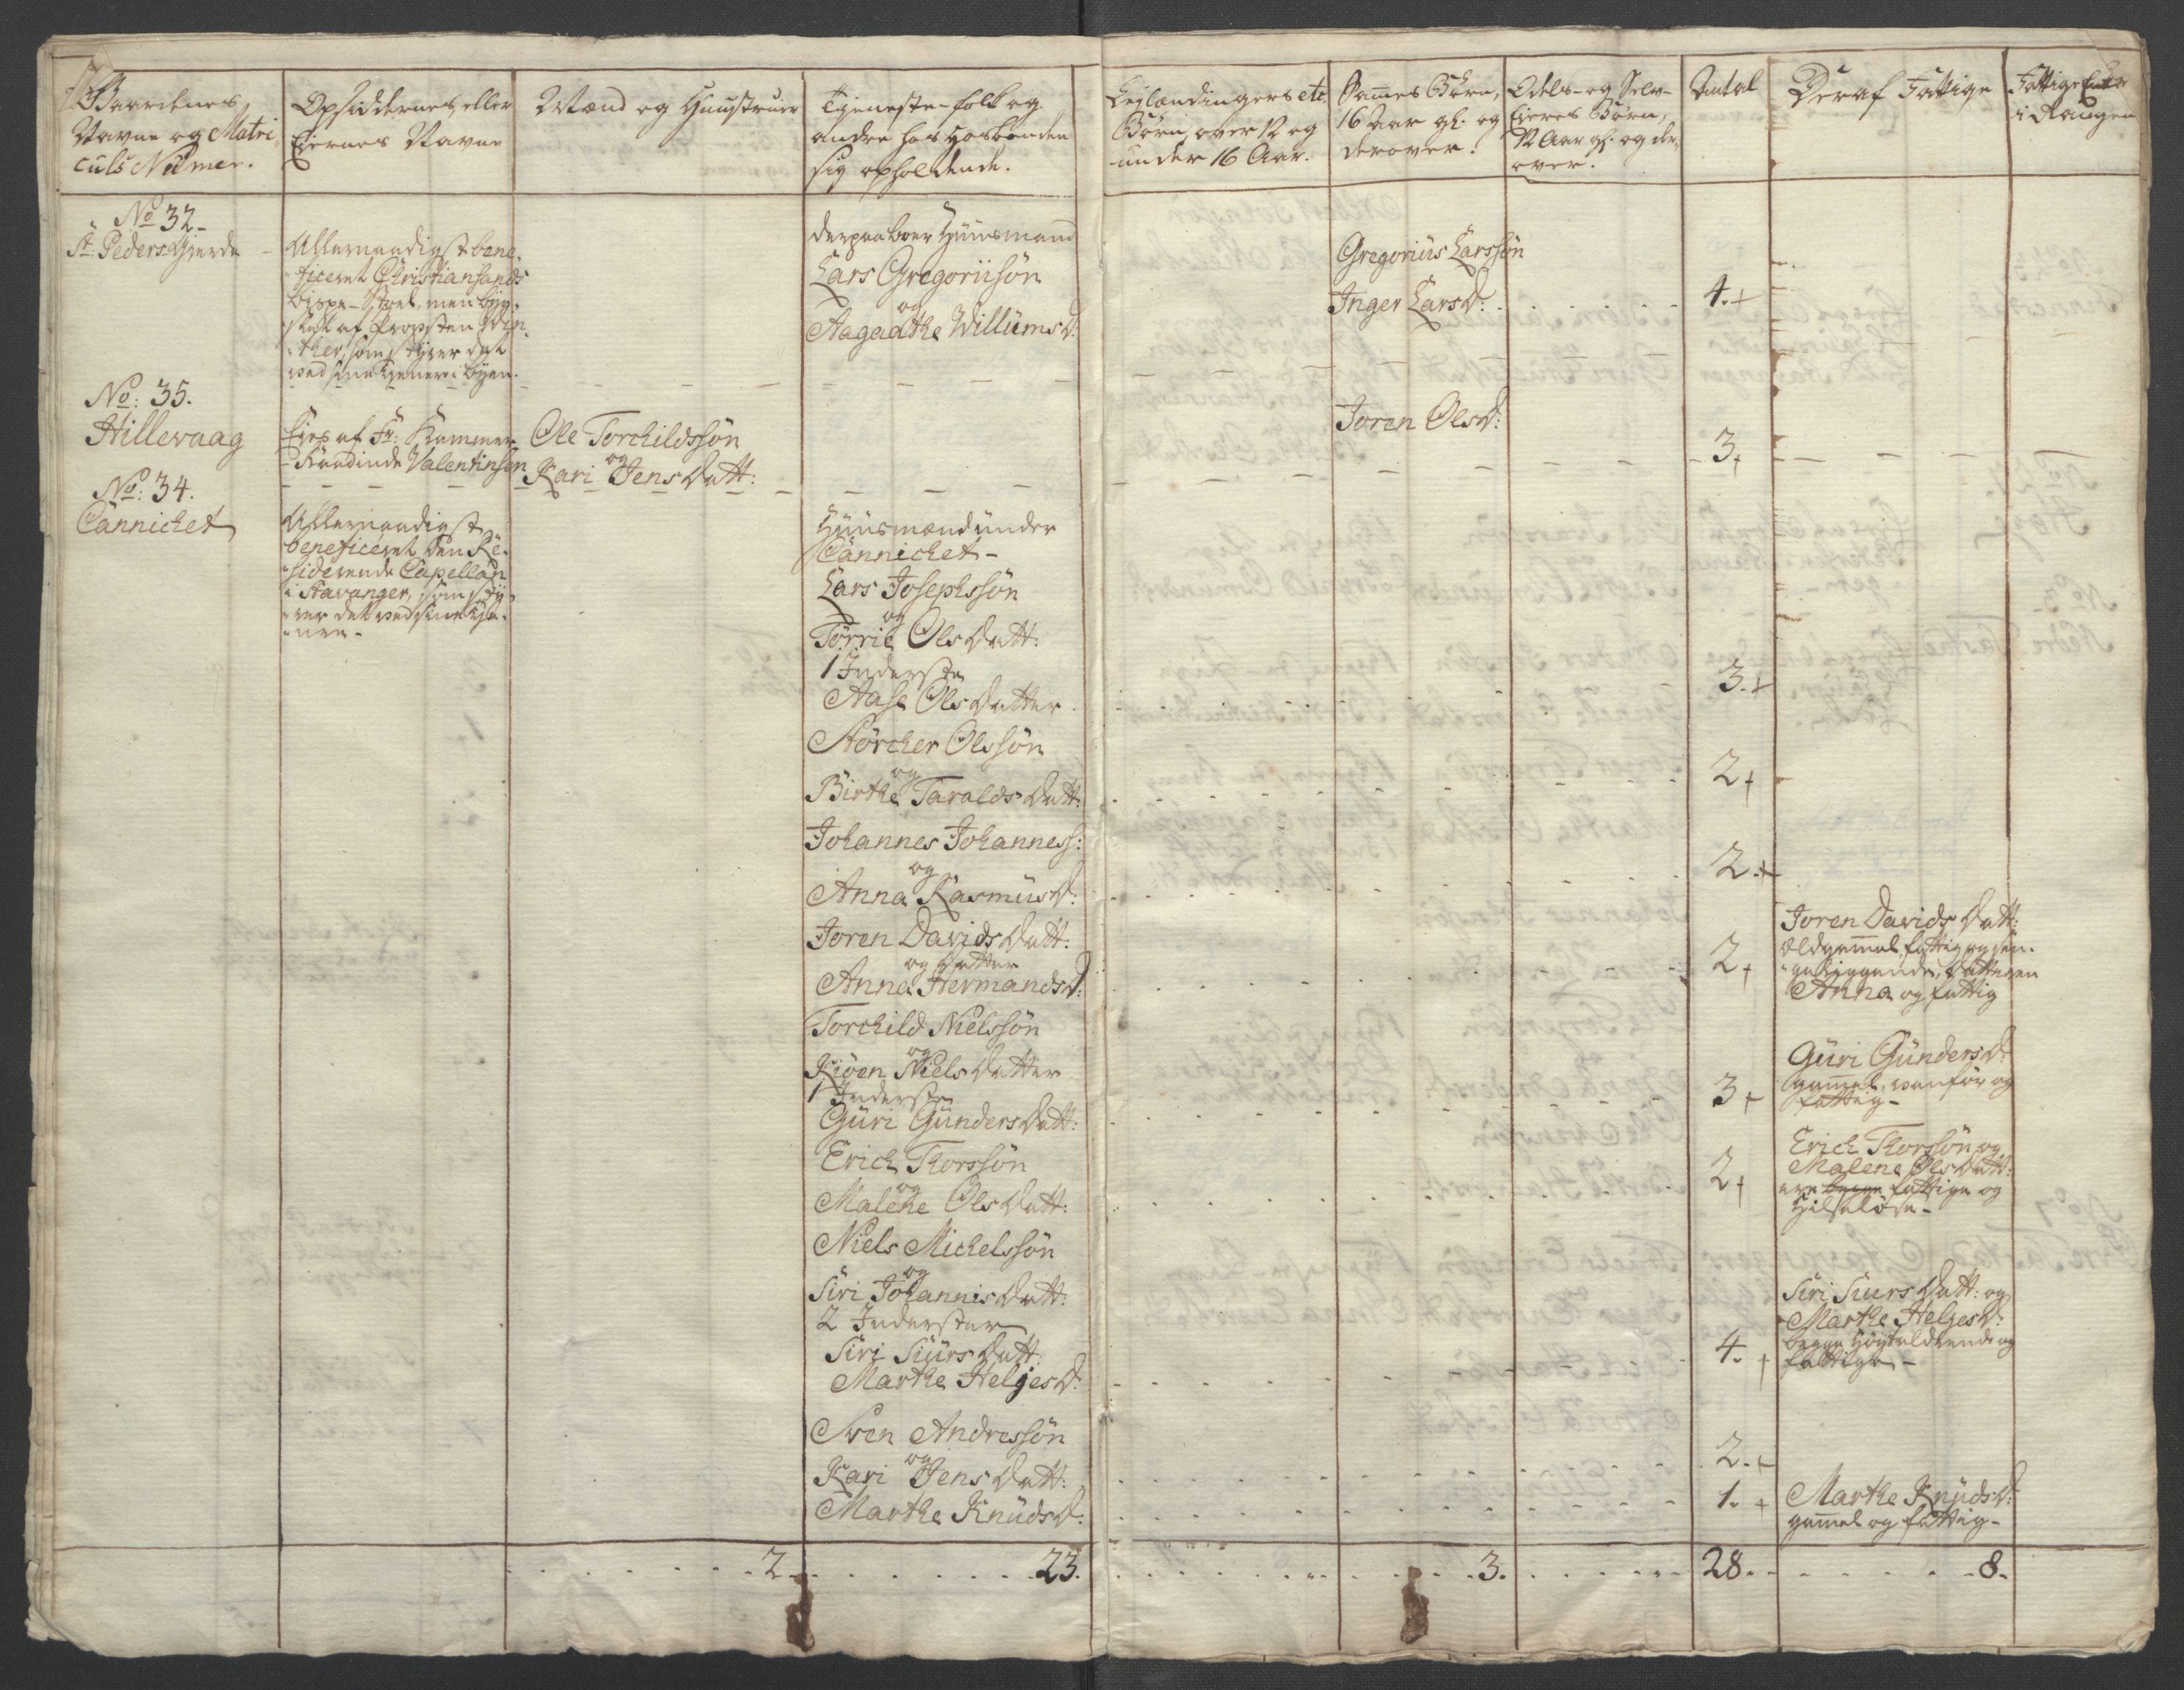 Gaardenes
Navne og Matri
culs Numer.
Opsiddernes, eller
Eiernes Navne
Mænd og Hustruer
Tieneste-folk og
andre hos Hosbonden
sig opholdende.
Leylændingers etc.
Börn, over 12 og
under 16 Aar.
Sam̄es Börn,
16 Aar gl. og
derover.
Odels- og Selv-
Eieres Börn,
12 Aar gl. og der-
over.
Antal
Deraf Fattige
Fattige
i Raugen
No 32
St. Peders Gierde
Allernaadigst bene-
ficeret Christiansands
bispe-Stoel, men byg-
slet af Provsten Win-
ther, som styrer det
ved sine tienere i byen.
derpaa boer Huusmand
Lars Gregoriisön
og
Aagaathe Willums D:
Gregorius Larssön
Inger Lars D:
4.+
No: 35.
Hillevaag
Eies af Fr: Kammer-
Raadinde Valentinsen
Ole Torchildssön
og
Kari Jens Datt:
Joren Ols D:
3+
No: 34.
Cannichet
Allernaadigst
beneficeret den Re-
siderende Capellan
i Stavanger, som sty-
rer det ved sine tie-
nere-
Huusmænd under
Cannichet-
Lars Josephssön
og
Törrie Ols Datt:
1 Inderste
Aase Ols Datter
3.+
Störcher Olssön
og
Birthe Taralds Datt:
2+
Johannes Johanness:
og
Anna Rasmus D:
2.+
Joren Davids Datt:
og datter
Anna Hermands D:
2+
Joren Davids Datt:
Oldgammel, fattig og sen-
geliggende, datteren
Anna og fattig
Torchild Nielssön
og
Kiöen Niels Datter
1 Inderste
Guri Gunders Datt:
3+
Guri Gunders D:
gam̄el, vanför og
fattig-
Erich Thorssön
og
Malene Ols Datt:
2+
Erich Thorssön og
Malene Ols Datt:
ere begge fattige og
Hilselöse-
Niels Michelssön
og
Siri Johannis Datt:
2 Inderster
Siri Siurs Datt
Marthe Helges D:
4.+
Siri Siurs Datt: og
Marthe Helges D:
begge Höytaldrende og
fattige-
Sven Andressön
og
Kari Jens Datt:
2.+
Marthe Knuds D:
1.+
Marthe Knuds D:
gam̄el og fattig-
2.
23.
3.
28.
8.